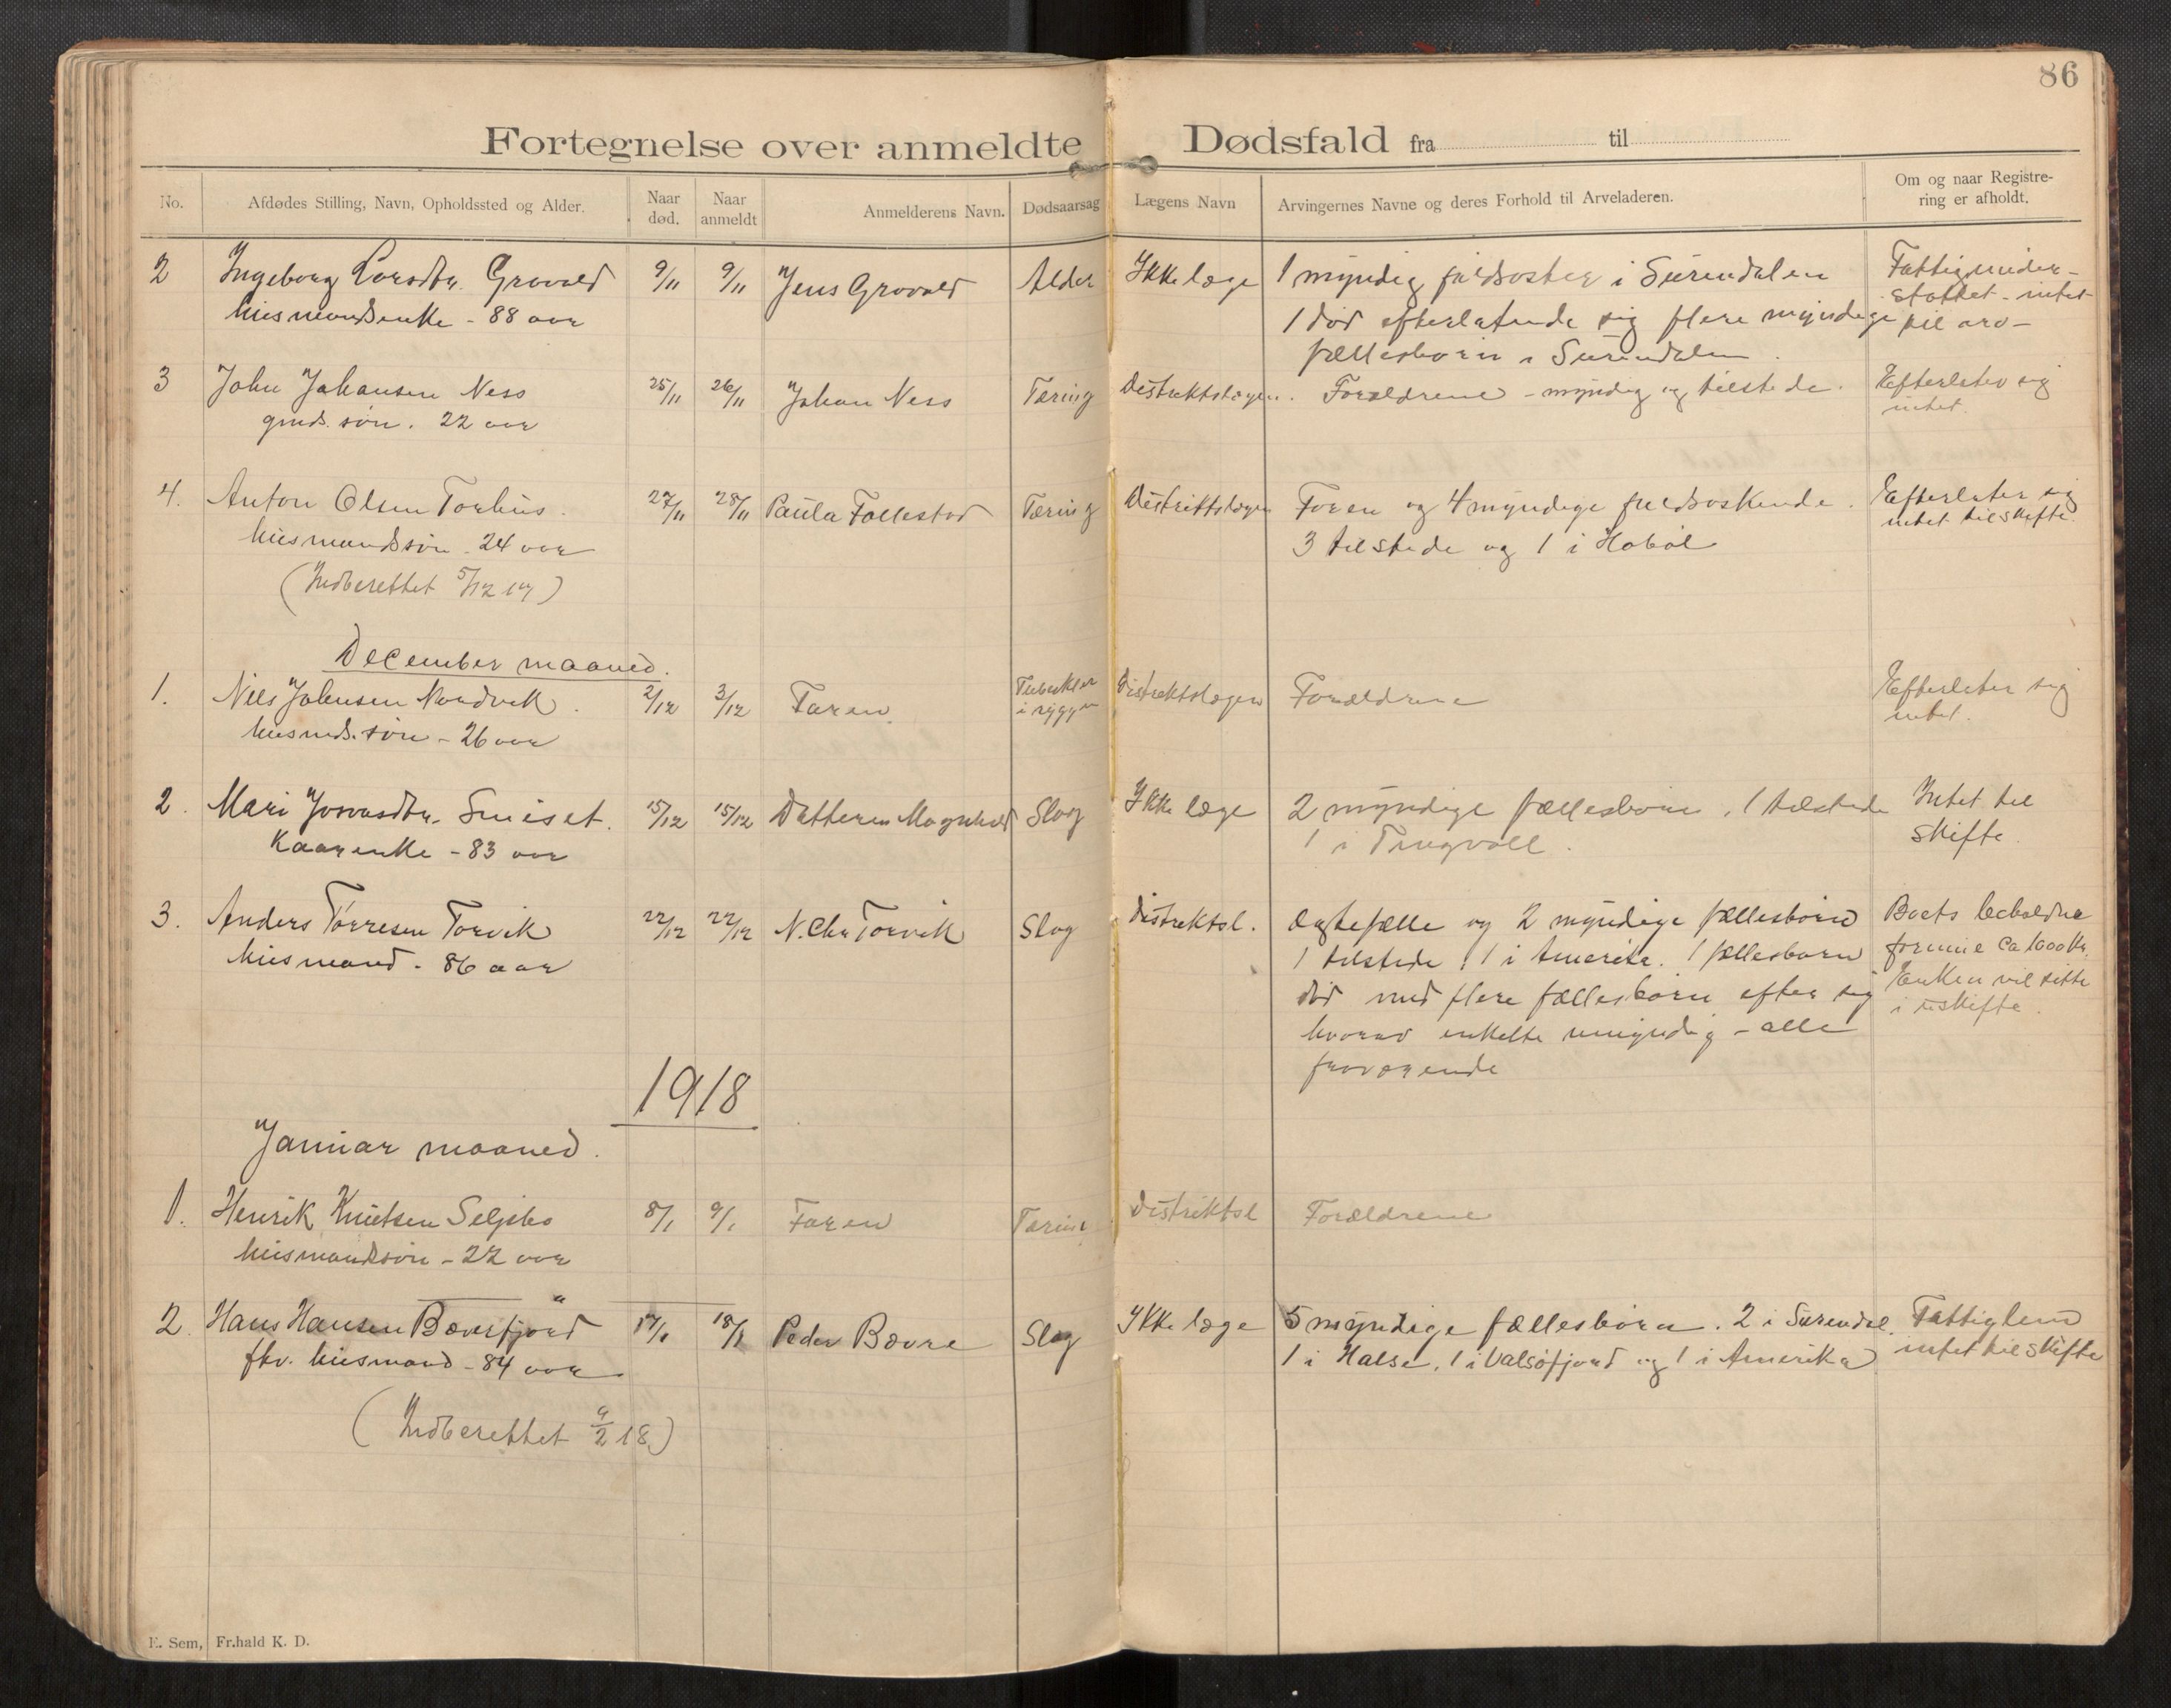 86
Fortegnelse over anmeldte Dødsfald fra til
No.
Afdødes Stilling, Navn, Opholdssted og Alder.
Naar død.
Naar anmeldt
Anmelderens Navn.
Dødsaarsag
Lægens Navn
Arvingernes Navne og deres Forhold til Arveladeren.
Om og naar Registre-
ring er afholdt.
2 Ingeborg Larsdtr. Grovald 9/11 9/11 Jens Grovald Alder Ikke læge 1 myndig fuldsøster i Surendalen Fattigunder-
husmandsenke - 88 aar 1 død efterlatende sig flere myndige støttet - intet
fællesbørn i Surendalen. til arv -
3 John Johansen Ness 25/11 26/11 Johan Ness Tæring Distriktslægen. Forældrene - myndig og tilstede. Efterlater sig
gmds. søn. 22 aar intet.
4. Anton Olsen Torhus. 27/11 28/11 Paula Follestad Tæring Distriktslægen Faren og 4 myndige fuldsøskende. Efterlater sig
husmandssøn - 24 aar 3 tilstede og 1 i Hobøl intet til skifte.
(Indberettet 5/12 17)
December maaned.
1. Nils Johnsen Nordvik. 2/12 3/12 Faren Tuberkler Distriktslægen Forældrene Efterlater sig
husmds. søn - 26 aar i ryggen intet.
2. Mari Smiset. 15/12 15/12 Datteren Magnhild Slag Ikke læge 2 myndige fællesbørn, 1 tilstede Intet til
Kaarenke - 83 aar 1 i Tingvoll. skifte.
3. Anders Tørresen Torvik 22/12 22/12 N. Chr Torvik Slag Distriktsl. Ægtefælle og 2 myndige fællesbørn Boets beholdne
husmand - 86 aar 1 tilstede, 1 i Amerika. 1 fællesbarn formue ca 1000 Kr.
død med flere fællesbørn efter sig Enken vil sitte
hvorav enkelte umyndig - alle i uskifte.
fraværende
1918
Januar maaned.
1. Henrik Knutsen Seljebø 8/1 9/1 Faren Tæring Distriktsl Forældrene
husmandssøn - 22 aar
2 Hans Hansen Bæverfjord 17/1 18/1 Peder Bævre Slag Ikke læge 5 myndige fællesbørn. 2 i Surendal. Fattiglem
fhv. husmand - 84 aar 1 i Halse, 1 i Valsøfjord og 1 i Amerika intet til skifte
(Indberettet 9/2 18)
E. Sem, Fr.hald K. D.